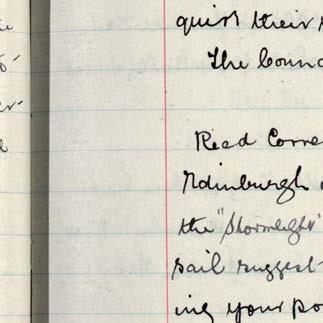 quish their
The Counc
Read Corre
Edinburgh
the "Stormlight"
sail suggest-
ing your po